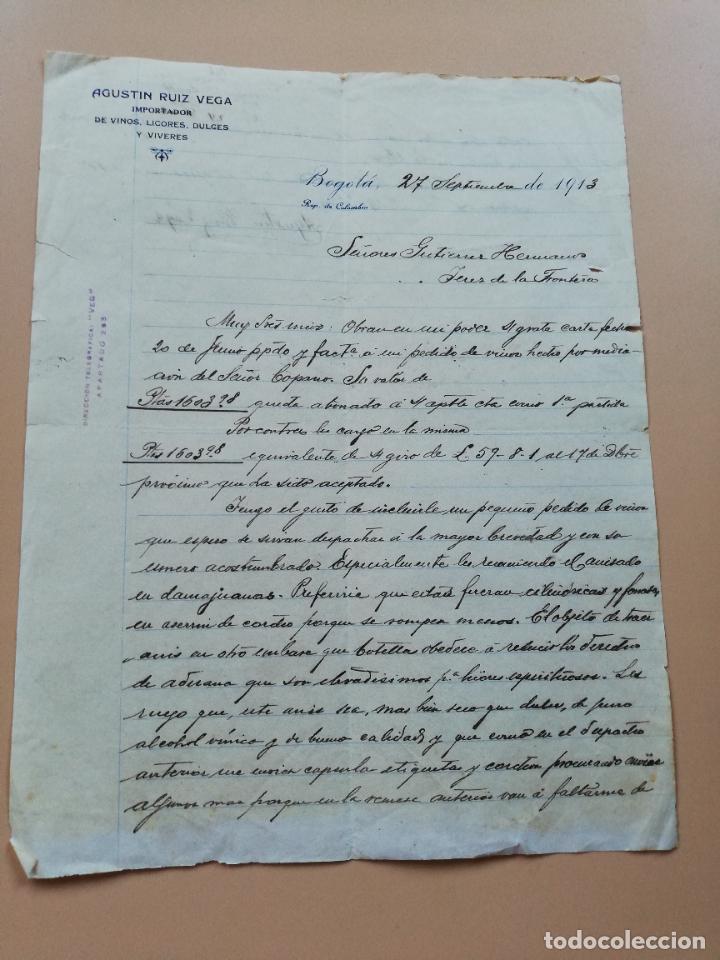 AGUSTIN RUIZ VEGA
IMPORTADOR
DE VINOS, LICORES, DULCES
Y VIVERES
Bogotá, 27 Septiembre de 1913
Rep. de Colombia
Señores Gutierrez Hermanos
Jerez de la Frontera
DIRECCION TELEGRAFICA: "VEG"
APARTADO 293
Muy Sres mios: Obran en mi poder su grata carta fecha
20 de Junio ppdo y facta á mi pedido de vinos hecho por media-
ción del Señor Copano. Su valor de
Ptas 1603.98 queda abonado á su apble cta como 1ª partida
Por contra les cargo en la misma
Pts 1603.98 equivalente de su giro de £. 59-8-1 al 17 de Dbre
próximo que ha sido aceptado.
Tengo el gusto de incluirle un pequeño pedido de vinos
que espero se sirvan despachar á la mayor brevedad y con su
esmero acostumbrado. Especialmente les recomiendo el anisado
en damajuanas. Preferiria que estas fueran cilindricas y forradas
en aserrin de corcho porque se rompen menos. El objeto de traer
anis en otro embase que botella obedece á reducir los derechos
de aduana que son elevadisimos pª licores espirituosos. Les
ruego que, este anis sea, mas bien seco que dulce, de puro
alcohol vínico y de buena calidad y que como en el despacho
anterior me envien capsula etiqueta y corchos procurando enviar
algunos mas porque en la remesa anterior van á faltarme de
todocoleccion.net